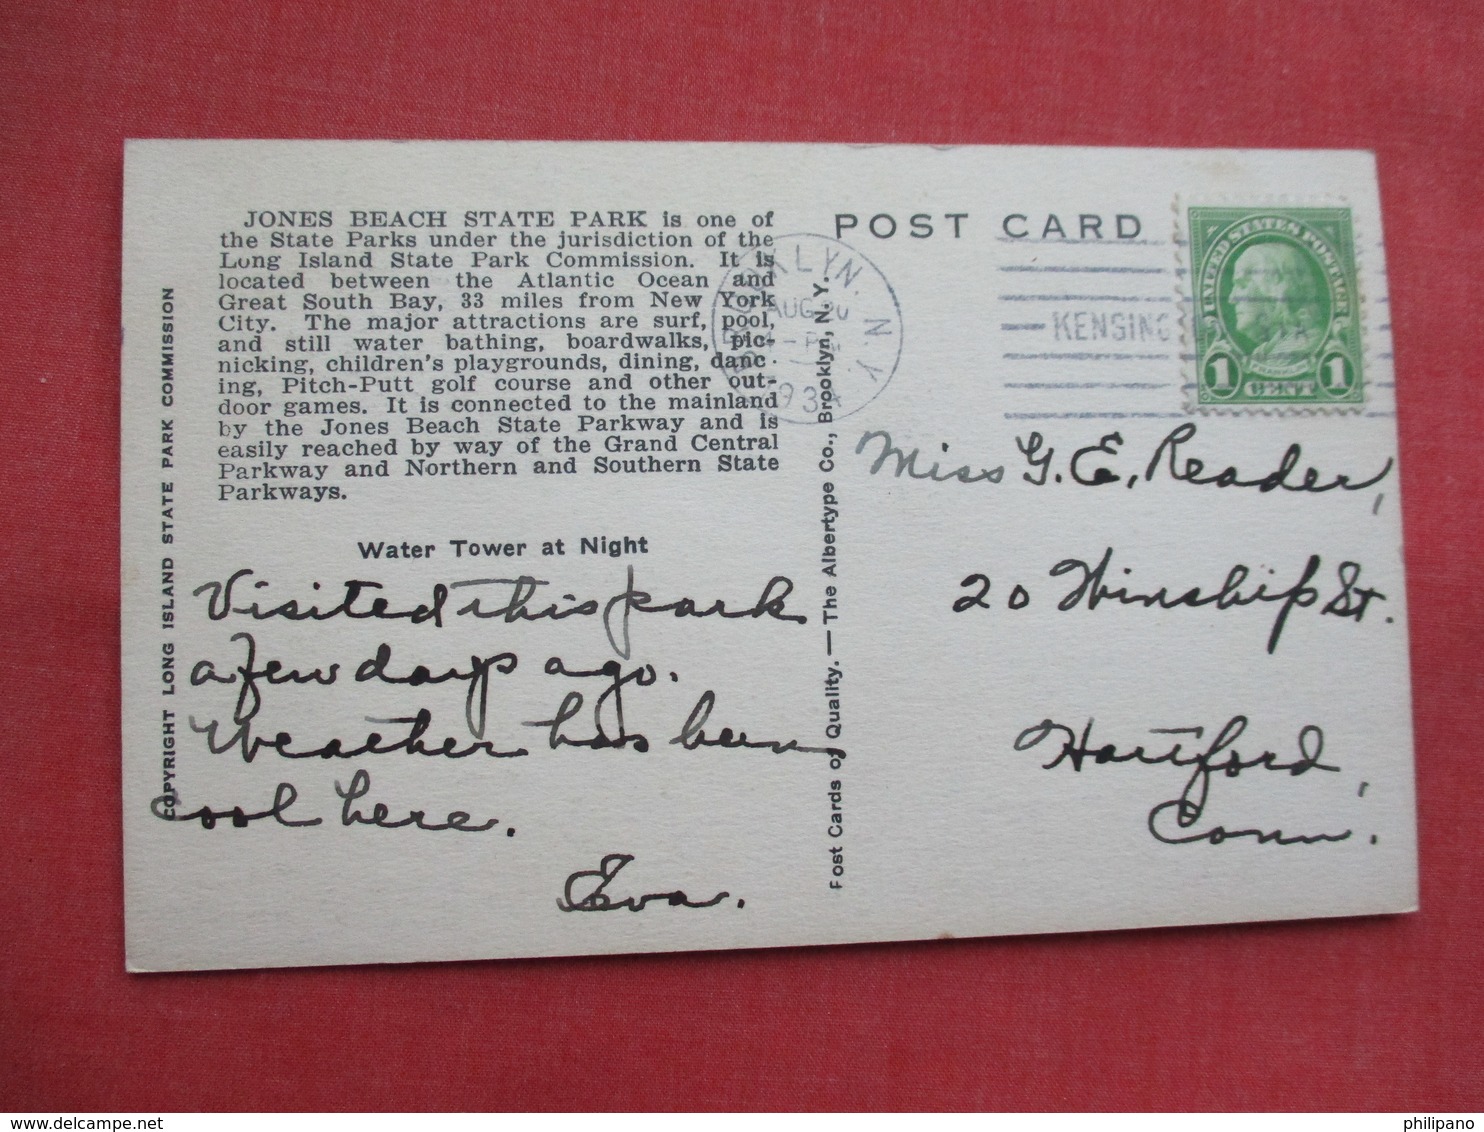 JONES BEACH STATE PARK is one of
the State Parks under the jurisdiction of the
Long Island State Park Commission. It is
located between the Atlantic Ocean and
Great South Bay, 33 miles from New York
City. The major attractions are surf, pool,
and still water bathing, boardwalks, pic-
nicking, children's playgrounds, dining, danc-
ing, Pitch-Putt golf course and other out-
door games. It is connected to the mainland
by the Jones Beach State Parkway and is
easily reached by way of the Grand Central
Parkway and Northern and Southern State
Parkways.
Water Tower at Night
Visited this park
a few days ago.
Weather has been
cool here.
Eva.
COPYRIGHT LONG ISLAND STATE PARK COMMISSION
Post Cards of Quality.—The Albertype Co., Brooklyn, N. Y.
POST CARD
BROOKLYN, N.Y.
AUG 20
1934
KENSING STA
UNITED STATES POSTAGE
FRANKLIN
1 CENT 1
Miss G. E. Reader,
20 Winship St.
Hartford,
Conn.
delcampe.net
philipano